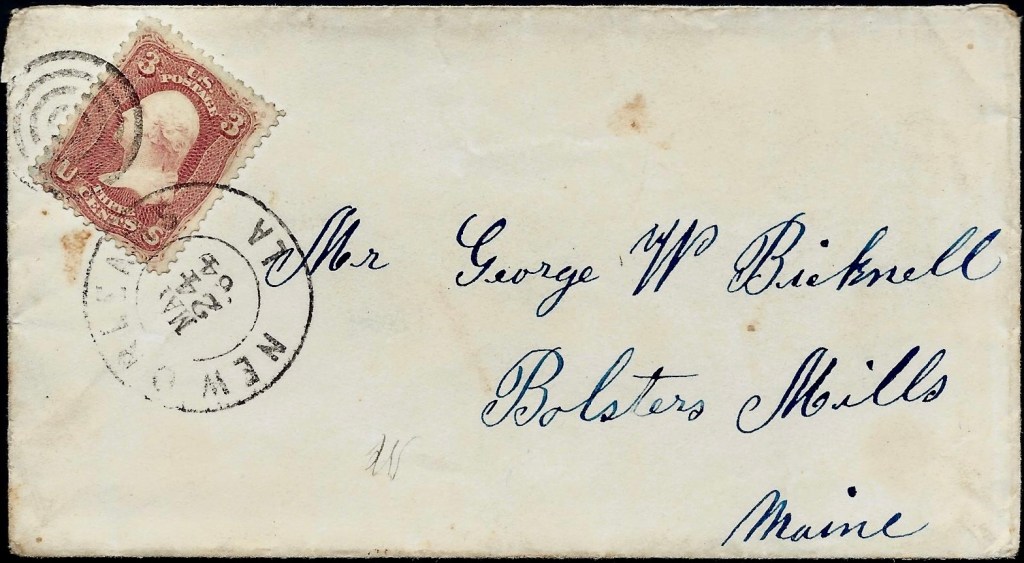 3 U.S. 3
POSTAGE
U THREE S
CENTS
NEW ORLEA LA
24
64
Mr George W Bicknell
Bolsters Mills
Maine